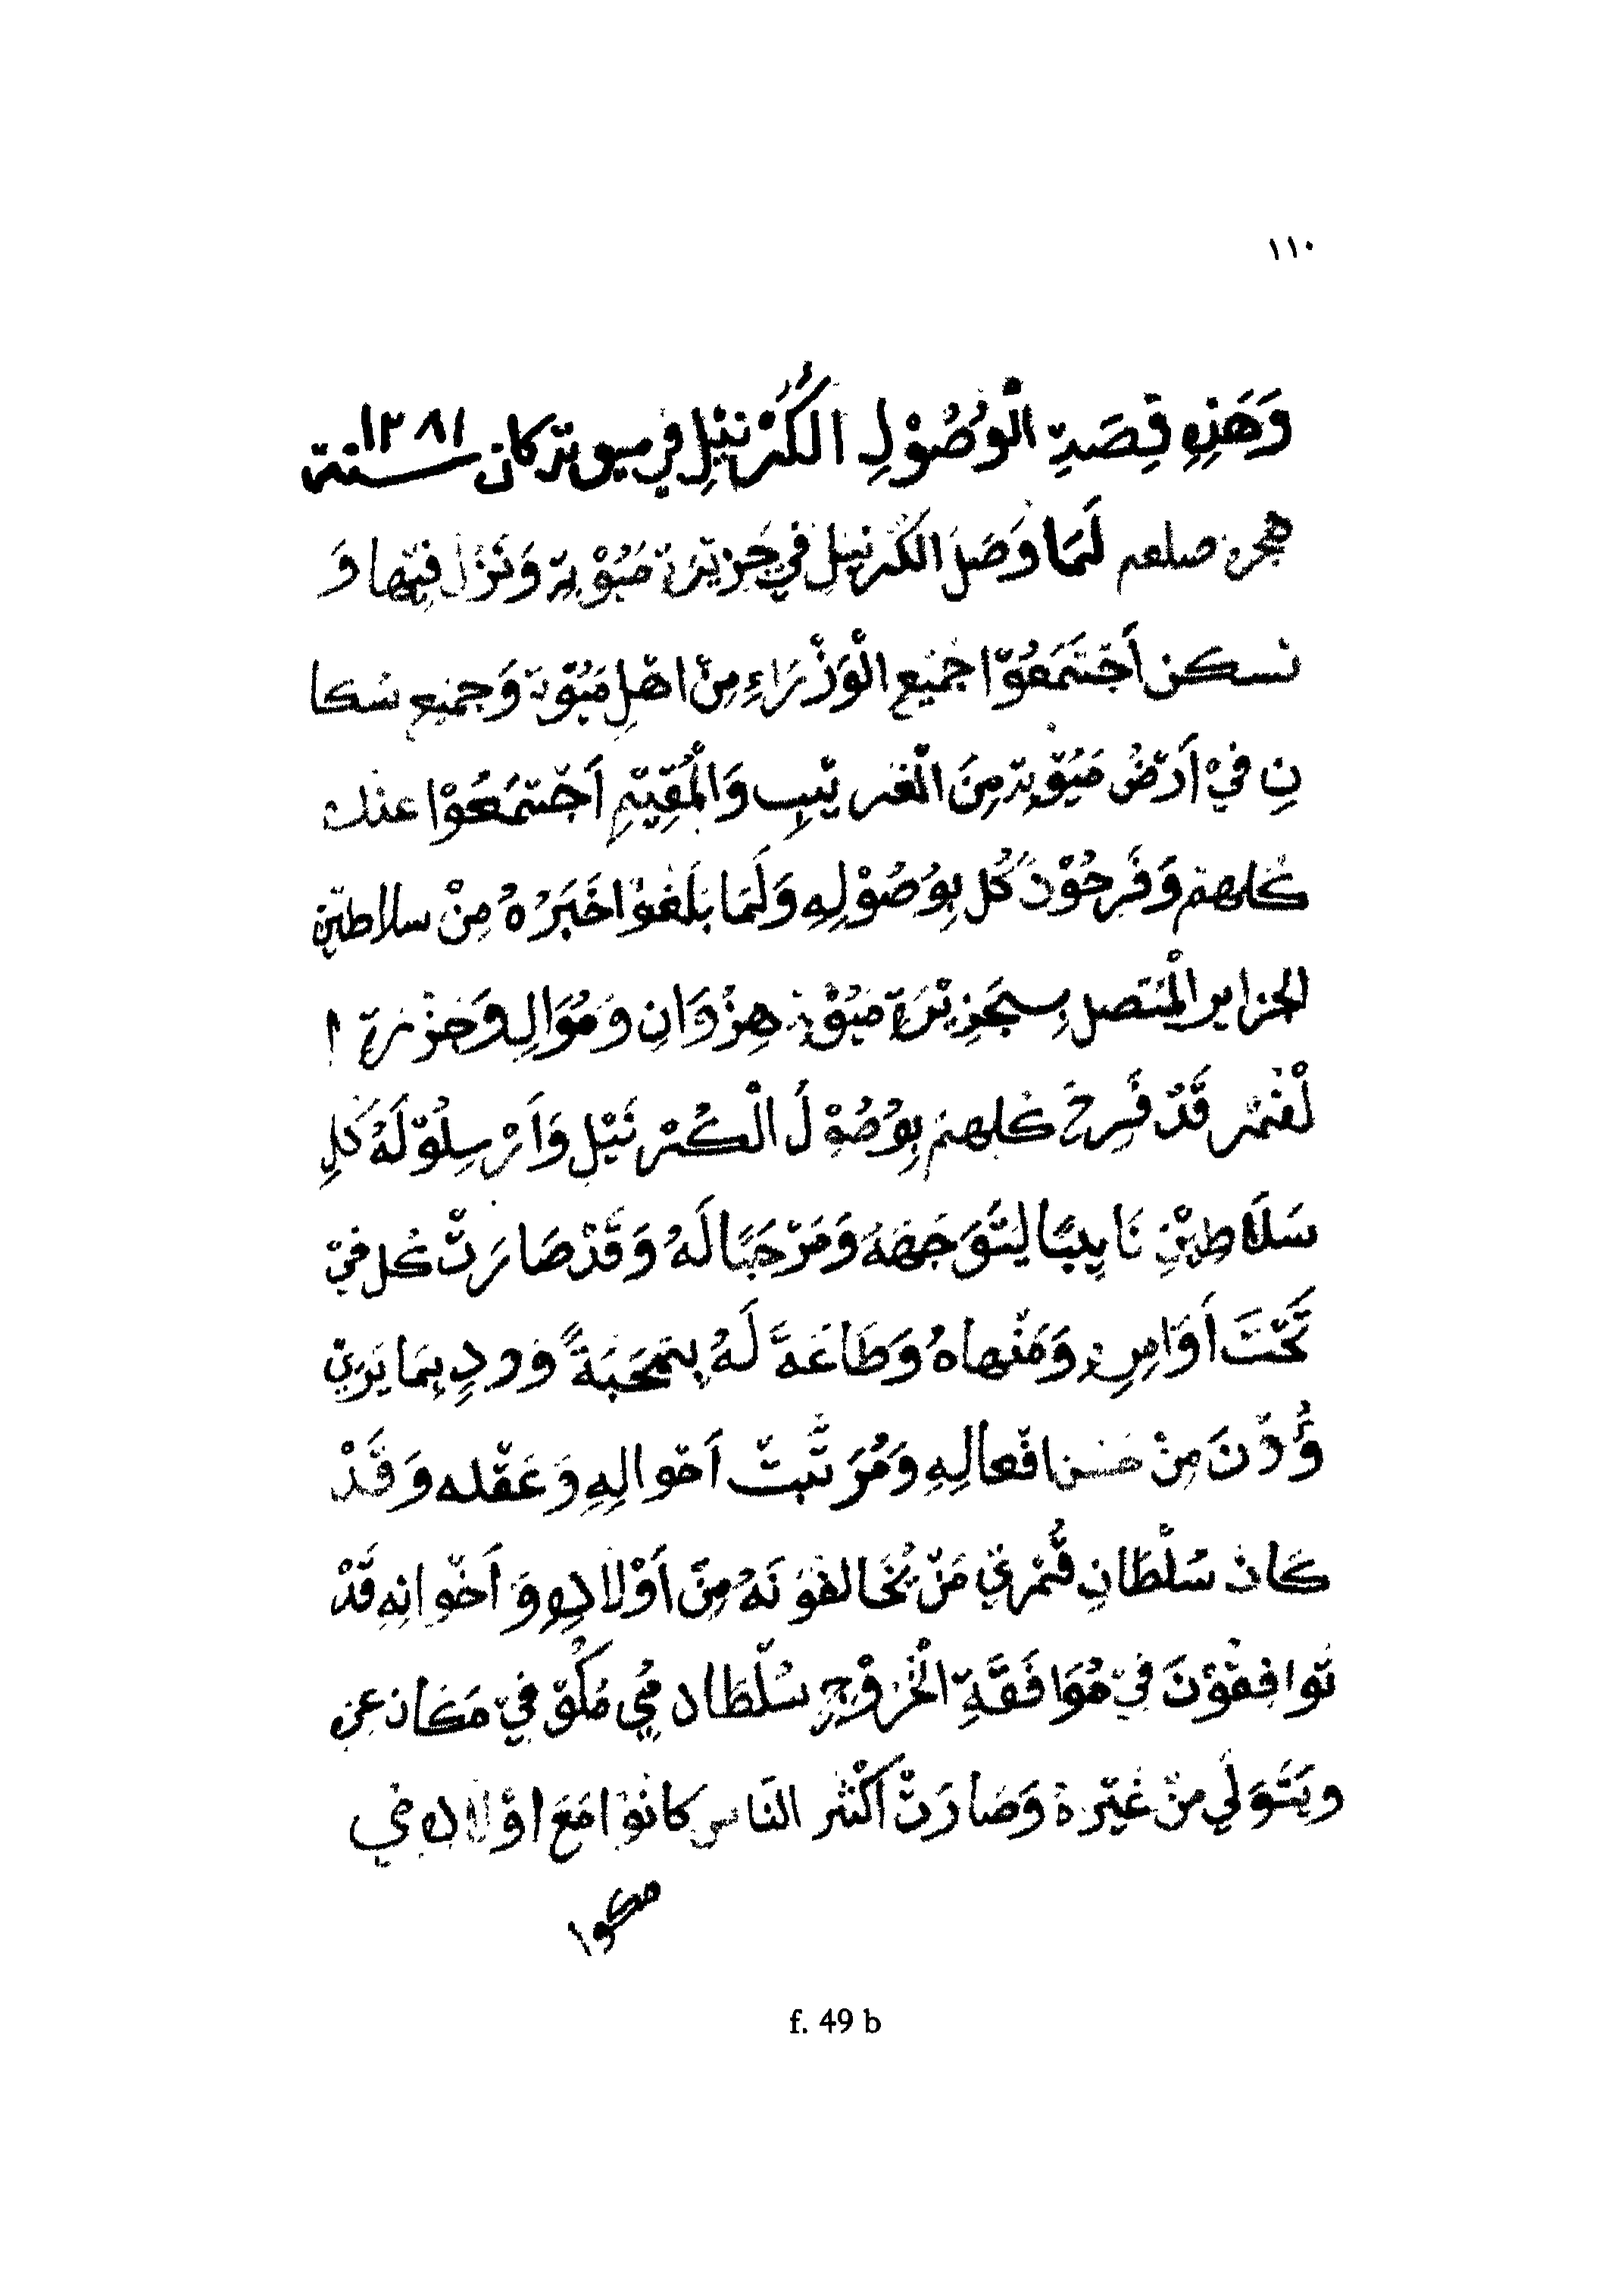 ١١٠
وَهَذِهِ قِصَةِ الْوُصُوْلِ الكُرْنَيْلِ في ميوتة كان سنة ١٢٨١
هجرة صلعم لَمَا وَصَلَ الكُرنيل في جَزِيْرَة مَيُوْتة وَنَزَلَ فِيْها وَ
نسكن أَجْتَمَعُوْا جَمْيع الْوَزْرَاءِ مِنْ اهْلِ مَيُوْتة وَجميع سُكا
نِ فيْ أَرْضُ مَيُوْتة مِنَ الْغريْبِ وَالْمُقِيْمِ أَجْتَمَعُوْا عنده
كُلهمْ وَفَرِحُوْنَ كُل بِوُصُوْلِهِ وَلَمَا بَلَغوْا خَبَرُهُ مِنْ سلاطيْنِ
الجزاير الْمتصل بِجَزِيْرَة مَيُوْتة هِنْزُوَانِ وَمُوَالِ وَجَزْيرة ا
لْقمْر قَدْ فَرِحَ كُلهمْ بِوُصُوْلَ الْكُرْنَيْلِ وَأَرْسِلُوْ لَهُ كَلِ
سَلَاطِيْنِ نَايبًا لِيَتَوَجَهَهُ وَمَرْحَبًا لَهُ وَقَدْ صَارَتْ كُل فيْ
تَحْتَ أَوَامِرِهِ وَمَنْهاهُ وَطَاعَةً لَهُ بِمَحَبَةً وَودٍ بِمَا يَرِيْ
وُدْنَ مِنْ حسن افْعالِهِ وَمُرَتّبتْ أَحْوالِهِ وَعَقْله وَقَدْ
كَانَ سُلْطَانِ قُمْرِيْ مَنْ يُخَالفوْنَهُ مِنْ أَوْلادِهِ وَأَخْوانِهِ قَدْ
تَوافِقُوْنَ فيْ مُوَافَقَةِ الْخُرُوْجِ سُلْطان مُي مُكُوْ فيْ مَكَان عِزِ
ويَتَوَلي منْ غَيْرة وَصَارَتْ أَكْثر النَاس كانوْا مَعَ اوْلاده مي
مكوا
f. 49 b